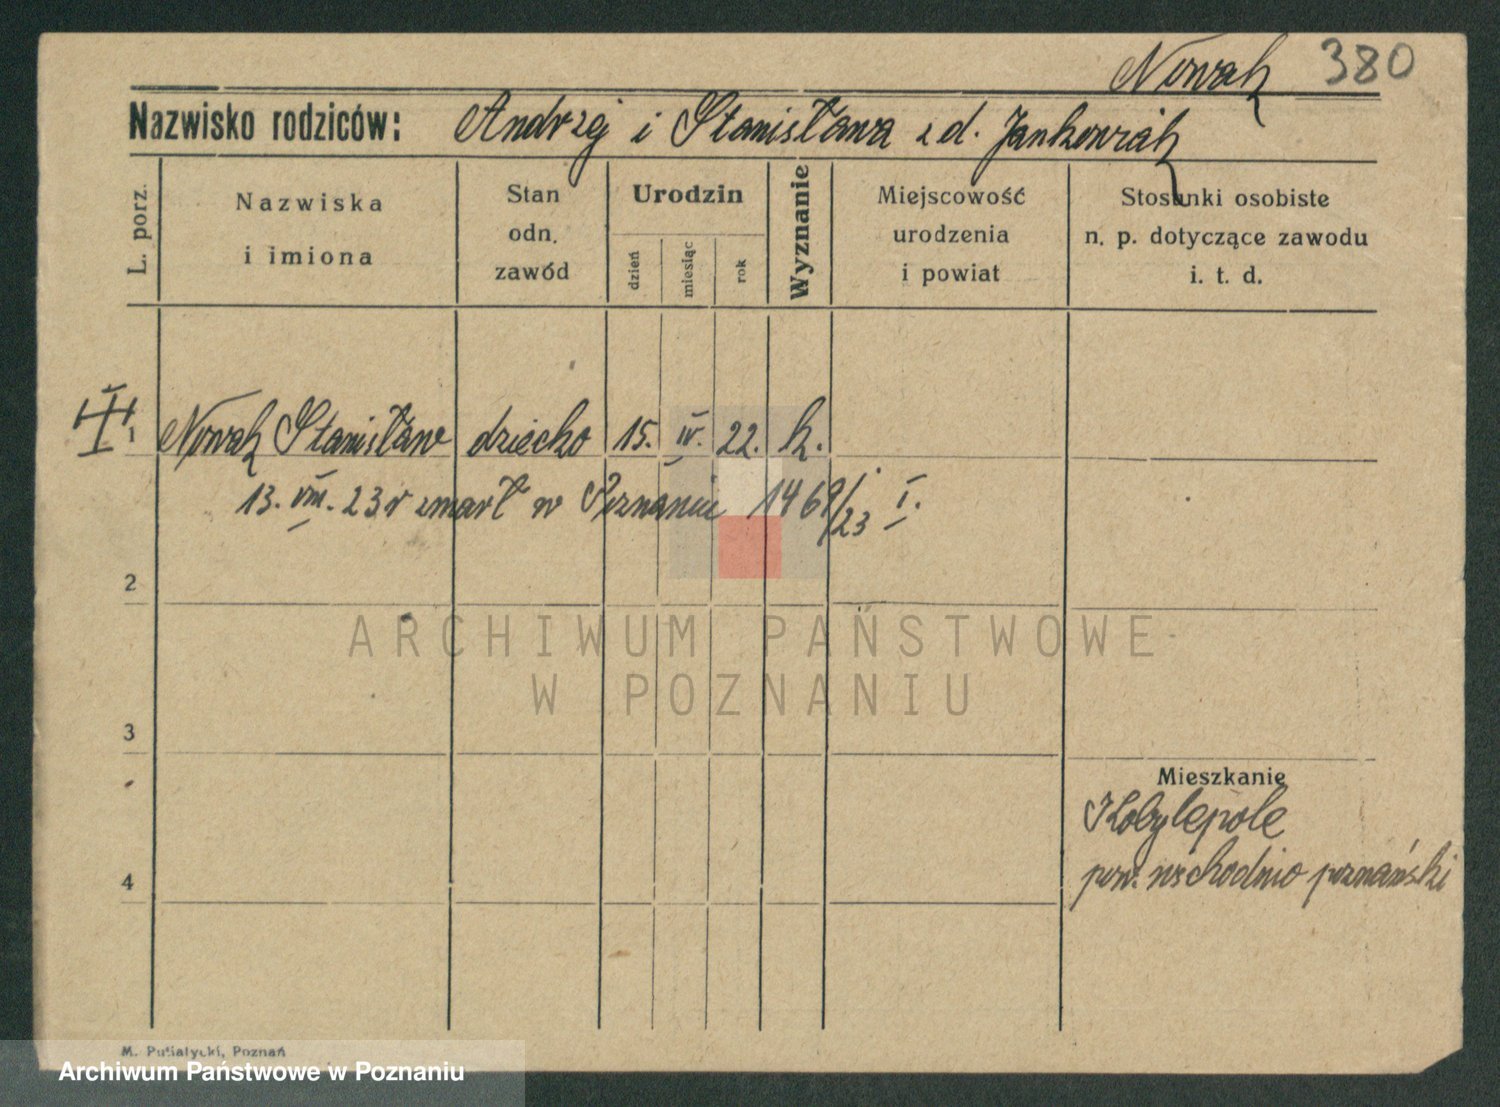 Nowak 380
Nazwisko rodziców: Andrzej i Stanisława z d. Jankowiak
L. porz.
Nazwiska i imiona
Stan odn. zawód
Urodzin
dzień
miesiąc
rok
Wyznanie
Miejscowość urodzenia i powiat
Stosunki osobiste n. p. dotyczące zawodu i. t. d.
1 Nowak Stanisław dziecko 15. IV. 22. k.
13. VIII. 23 r zmarł w Poznaniu 1469/23 I.
2
ARCHIWUM PAŃSTWOWE
W POZNANIU
3
Mieszkanie
Kobylepole
4
pow. wschodnio poznański
M. Putiatycki, Poznań
Archiwum Państwowe w Poznaniu